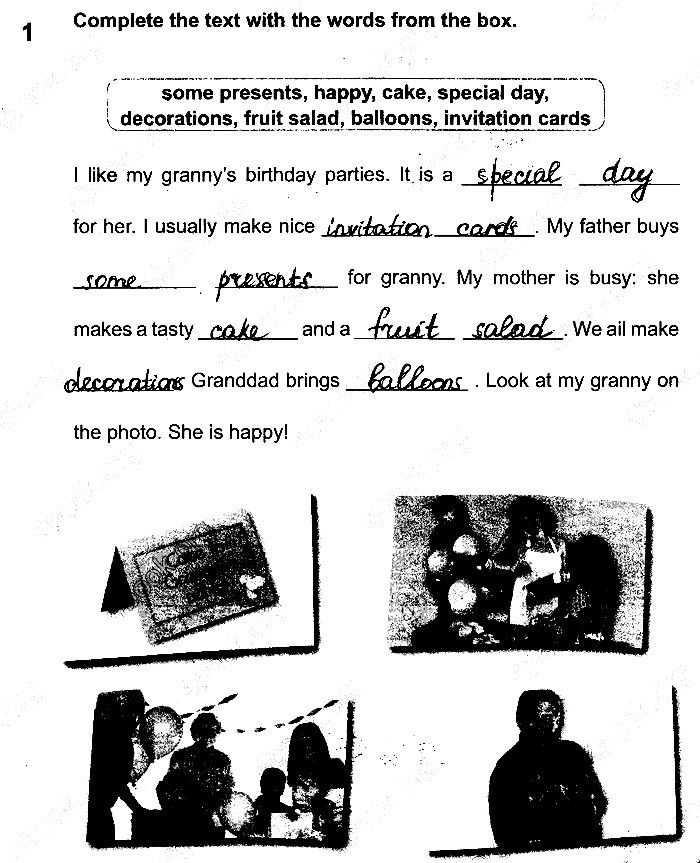 1
Complete the text with the words from the box.
some presents, happy, cake, special day,
decorations, fruit salad, balloons, invitation cards
I like my granny's birthday parties. It is a special day
for her. I usually make nice invitation cards. My father buys
some presents for granny. My mother is busy: she
makes a tasty cake and a fruit salad. We ail make
decorations Granddad brings balloons. Look at my granny on
the photo. She is happy!